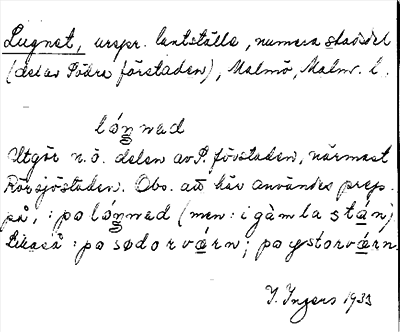 Lugnet, urspr. lantställe, numera stadsdel
(del av Södra förstaden), Malmö, Malm. l.
lóŋnəd
Utgör n.ö. delen av S. förstaden, närmast
Rörsjöstaden. Obs. att här användes prep.
på, : pa lóŋnəd (men: i gàmla stán)
Likaså : pa sødərvǽrn; pa ystərvǽrn.
I. Ingers 1933